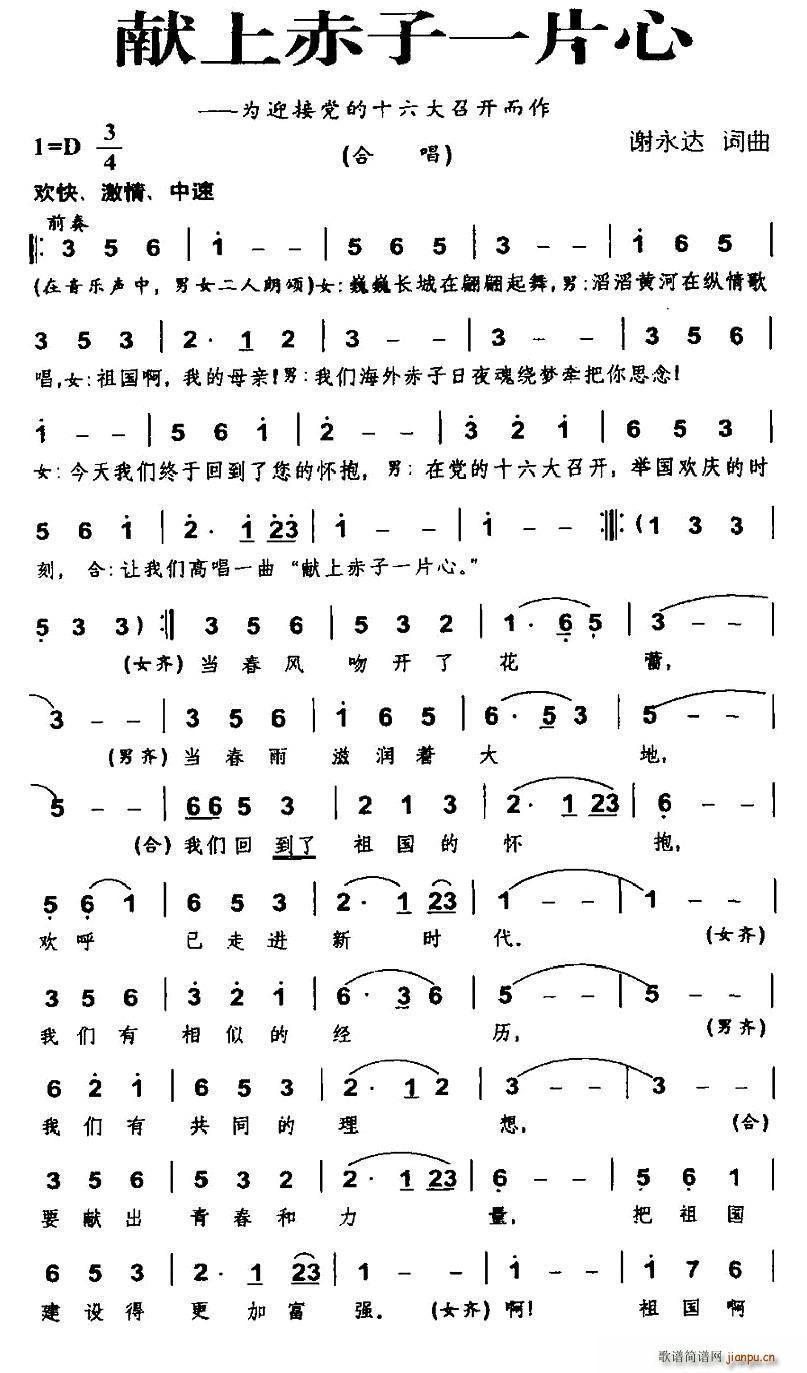 献上赤子一片心
——为迎接党的十六大召开而作
1=D 3/4 (合 唱) 谢永达 词曲
欢快、激情、中速
前奏
‖: 3 5 6 | i - - | 5 6 5 | 3 - - | i 6 5 |
(在音乐声中，男女二人朗颂)女:巍巍长城在翩翩起舞,男:滔滔黄河在纵情歌
3 5 3 | 2· 1 2 | 3 - - | 3 - - | 3 5 6 |
唱,女:祖国啊,我的母亲!男:我们海外赤子日夜魂绕梦牵把你思念!
i - - | 5 6 i | 2̇ - - | 3̇ 2̇ i | 6 5 3 |
女:今天我们终于回到了您的怀抱，男:在党的十六大召开，举国欢庆的时
5 6 i | 2̇· i 2̇3̇ | i - - | i - - :‖: (1 3 3 |
刻，合:让我们高唱一曲“献上赤子一片心。”
5̣ 3 3) :‖ 3 5 6 | 5 3 2 | 1· 6̣ 5̣ | 3 - - |
(女齐)当春风 吻开了花 蕾，
3 - - | 3 5 6 | i 6 5 | 6· 5 3 | 5 - - |
(男齐)当春雨 滋润着大 地，
5 - - | 66 5 3 | 2 1 3 | 2· 1 23 | 6̣ - - |
(合)我们回 到了 祖国的怀 抱，
5̣ 6̣ 1 | 6 5 3 | 2· 1 23 | 1 - - | 1 - - |
欢呼 已走进 新 时 代. (女齐)
3 5 6 | 3̇ 2̇ i | 6· 3 6 | 5 - - | 5 - - |
我们有 相似的 经 历， (男齐)
6 2̇ i | 6 5 3 | 2· 1 2 | 3 - - | 3 - - |
我们有 共同的 理 想， (合)
3 5 6 | 5 3 2 | 2· 1 23 | 6̣ - - | 5̣ 6̣ 1 |
要献出 青春和 力 量，把祖国
6 5 3 | 2· 1 23 | 1 - - | i - - | i 7 6 |
建设得 更 加富 强。(女齐)啊! 祖国啊
歌谱简谱网 jianpu.cn